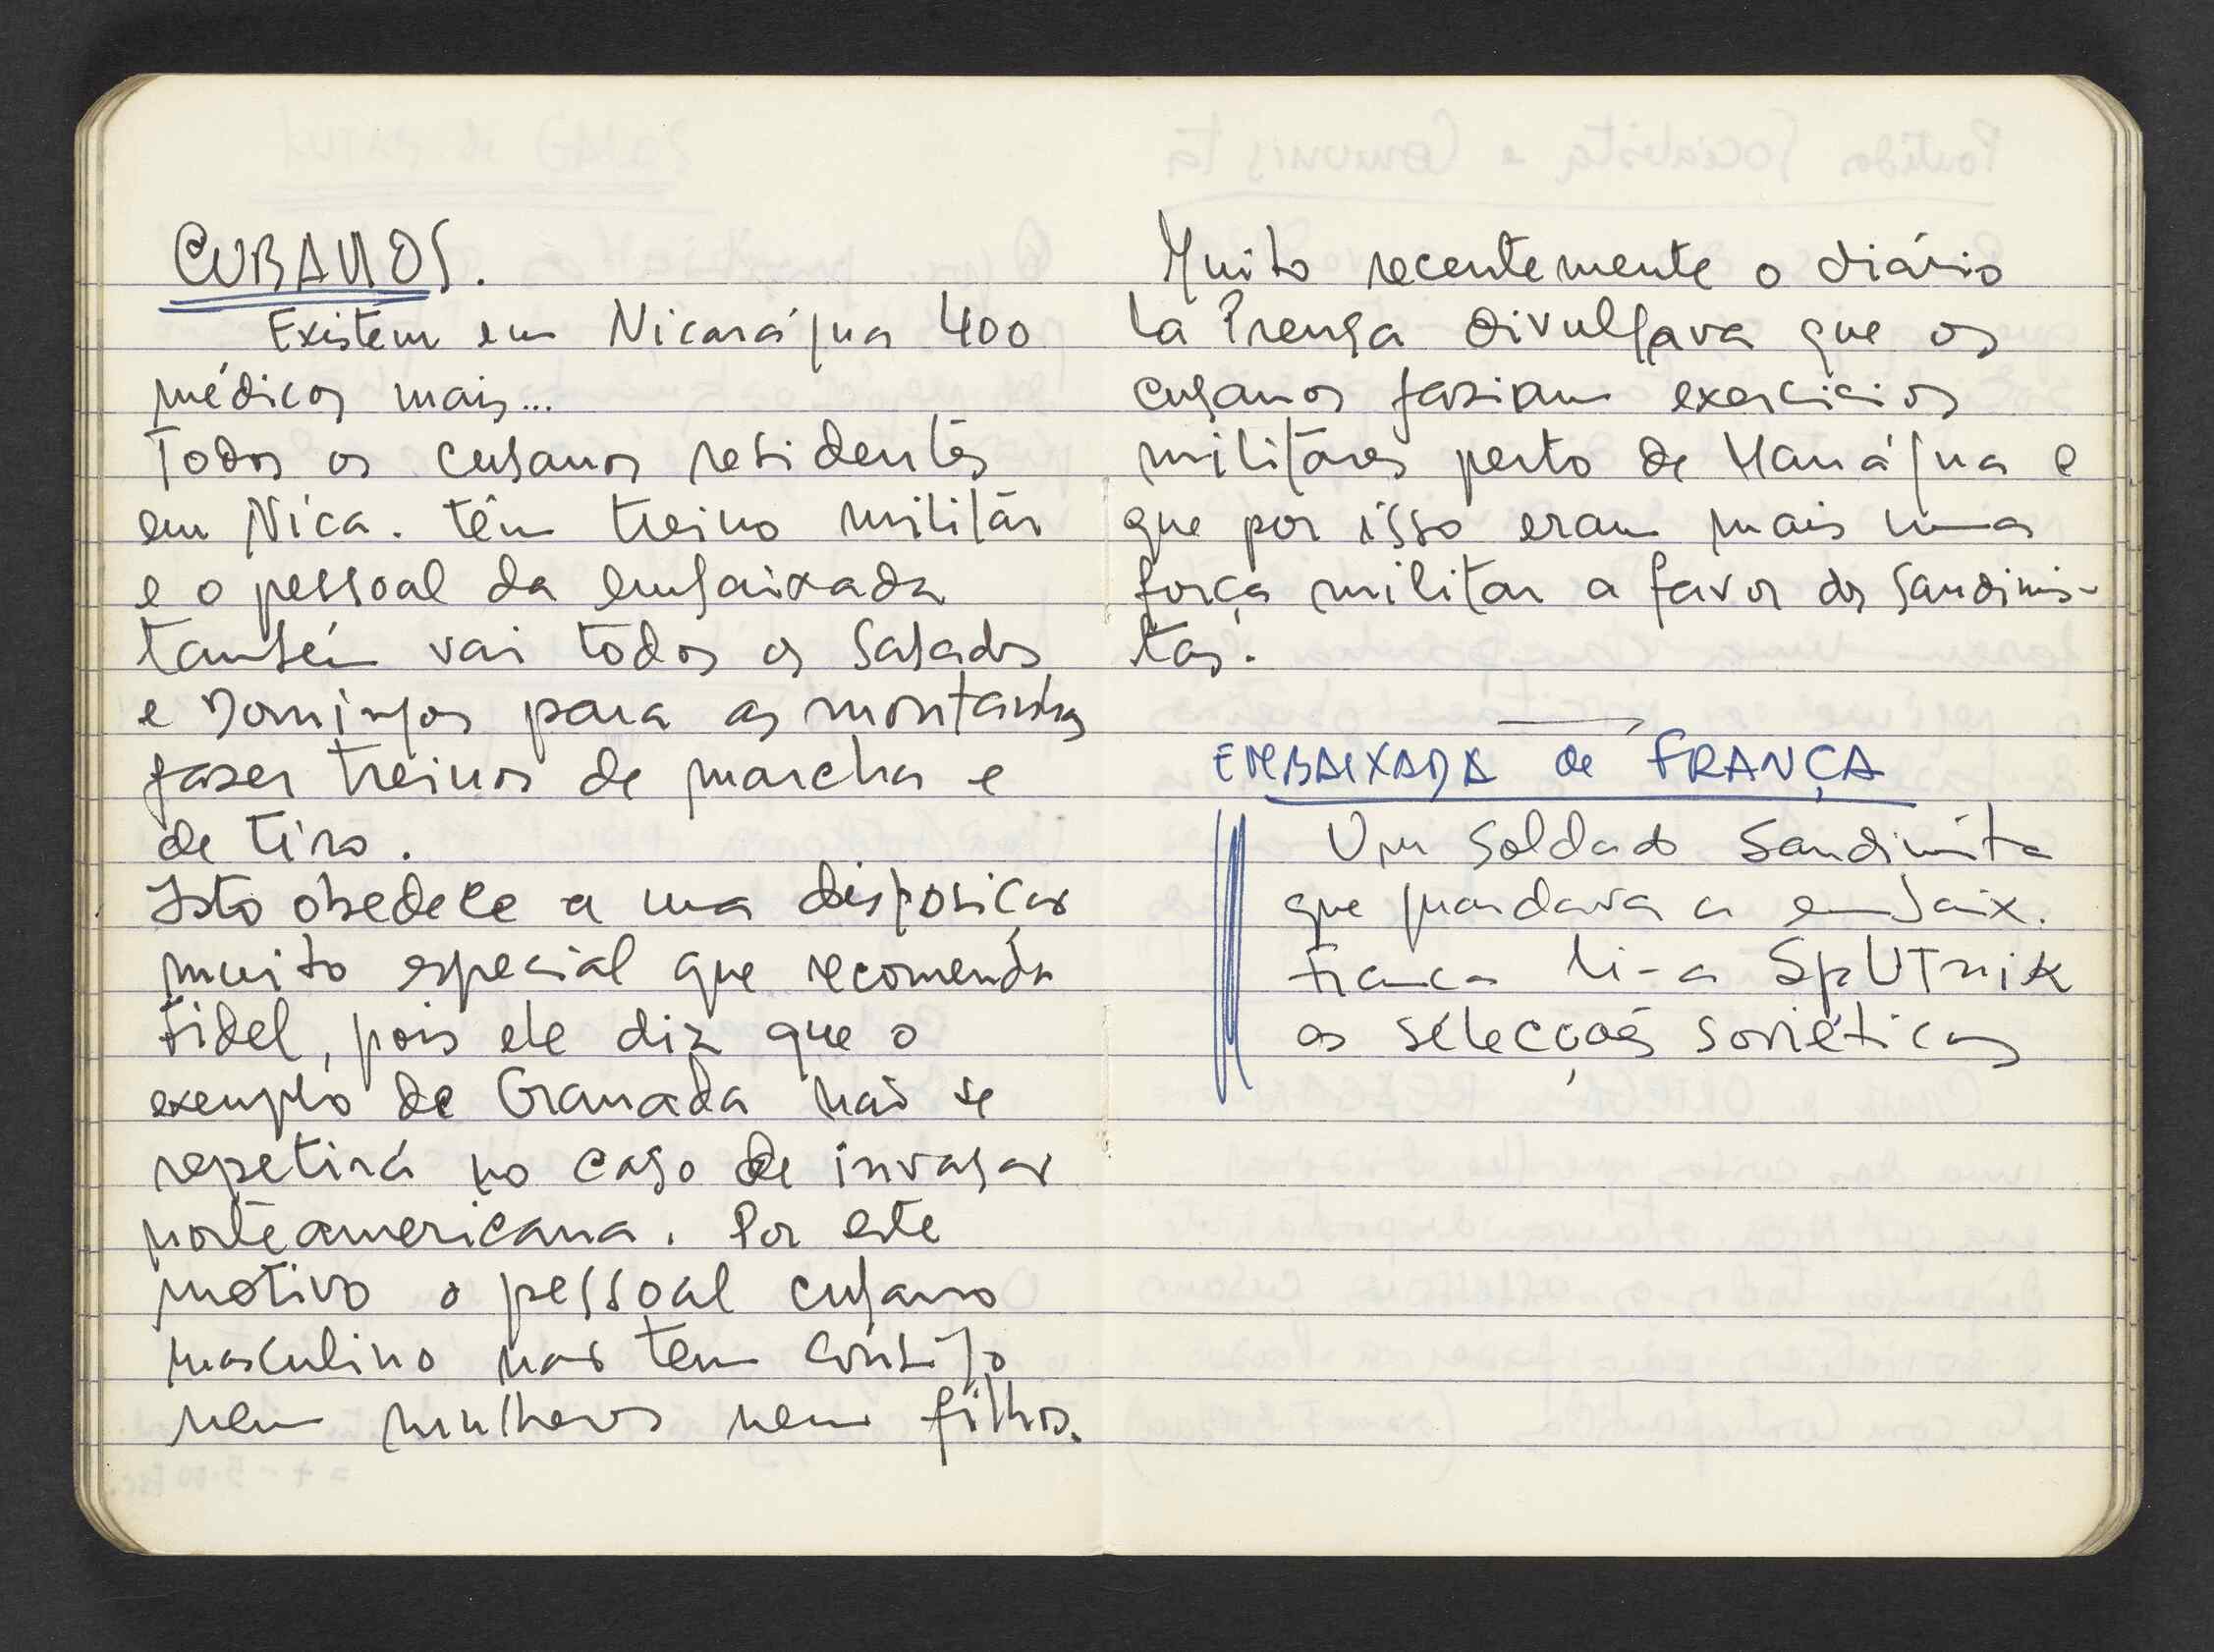 CUBANOS.
Existem em Nicarágua 400
médicos mais...
Todos os cubanos residentes
em Nica. têm treino militar
e o pessoal da embaixada
também vai todos os Sabados
e Domingos para as montanhas
fazer treinos de marcha e
de tiro.
Isto obedece a uma disposição
muito especial que recomenda
Fidel, pois ele diz que o
exemplo de Granada não se
repetirá no caso de invasão
norteamericana. Por este
motivo o pessoal cubano
masculino não tem consigo
nem mulheres nem filhos.
Muito recentemente o diário
la Prensa divulgava que os
cubanos faziam exercicios
militares perto de Manágua e
que por isso eram mais uma
força militar a favor dos Sandinis-
tas.
EMBAIXADA de FRANÇA
Um soldado Sandinista
que guardava a embaix.
Franca li-a SpUTnik
as selecções soviéticas